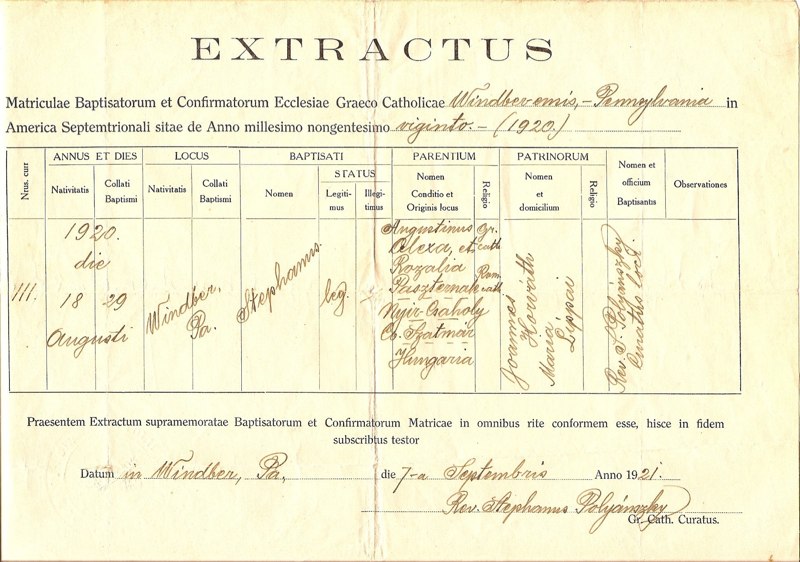 EXTRACTUS
Matriculae Baptisatorum et Confirmatorum Ecclesiae Graeco Catholicae Windberensis, - Pennsylvania in
America Septemtrionali sitae de Anno millesimo nongentesimo viginto. - (1920.)
Nrus. curr
ANNUS ET DIES
Nativitatis
Collati Baptismi
LOCUS
Nativitatis
Collati Baptismi
BAPTISATI
Nomen
STATUS
Legiti-
mus
Illegi-
timus
PARENTIUM
Nomen
Conditio et
Originis locus
Religio
PATRINORUM
Nomen
et
domicilium
Religio
Nomen et
officium
Baptisantis
Observationes
111.
1920.
die
18 29
Augusti
Windber,
Pa.
Stephanus.
leg.
Augustinus Gr.
Olexa, et cath
Rozalia Rom.
Paszternak cath
Nyir-Csaholy
Co. Szatmár
Hungaria
Joannes
Horváth
Maria
Lippai
Rev. S. Polyánszky
Curatus loci.
Praesentem Extractum supramemoratae Baptisatorum et Confirmatorum Matricae in omnibus rite conformem esse, hisce in fidem
subscribtus testor
Datum in Windber, Pa, die 7-a Septembris Anno 1921.
Rev. Stephanus Polyánszky
Gr. Cath. Curatus.